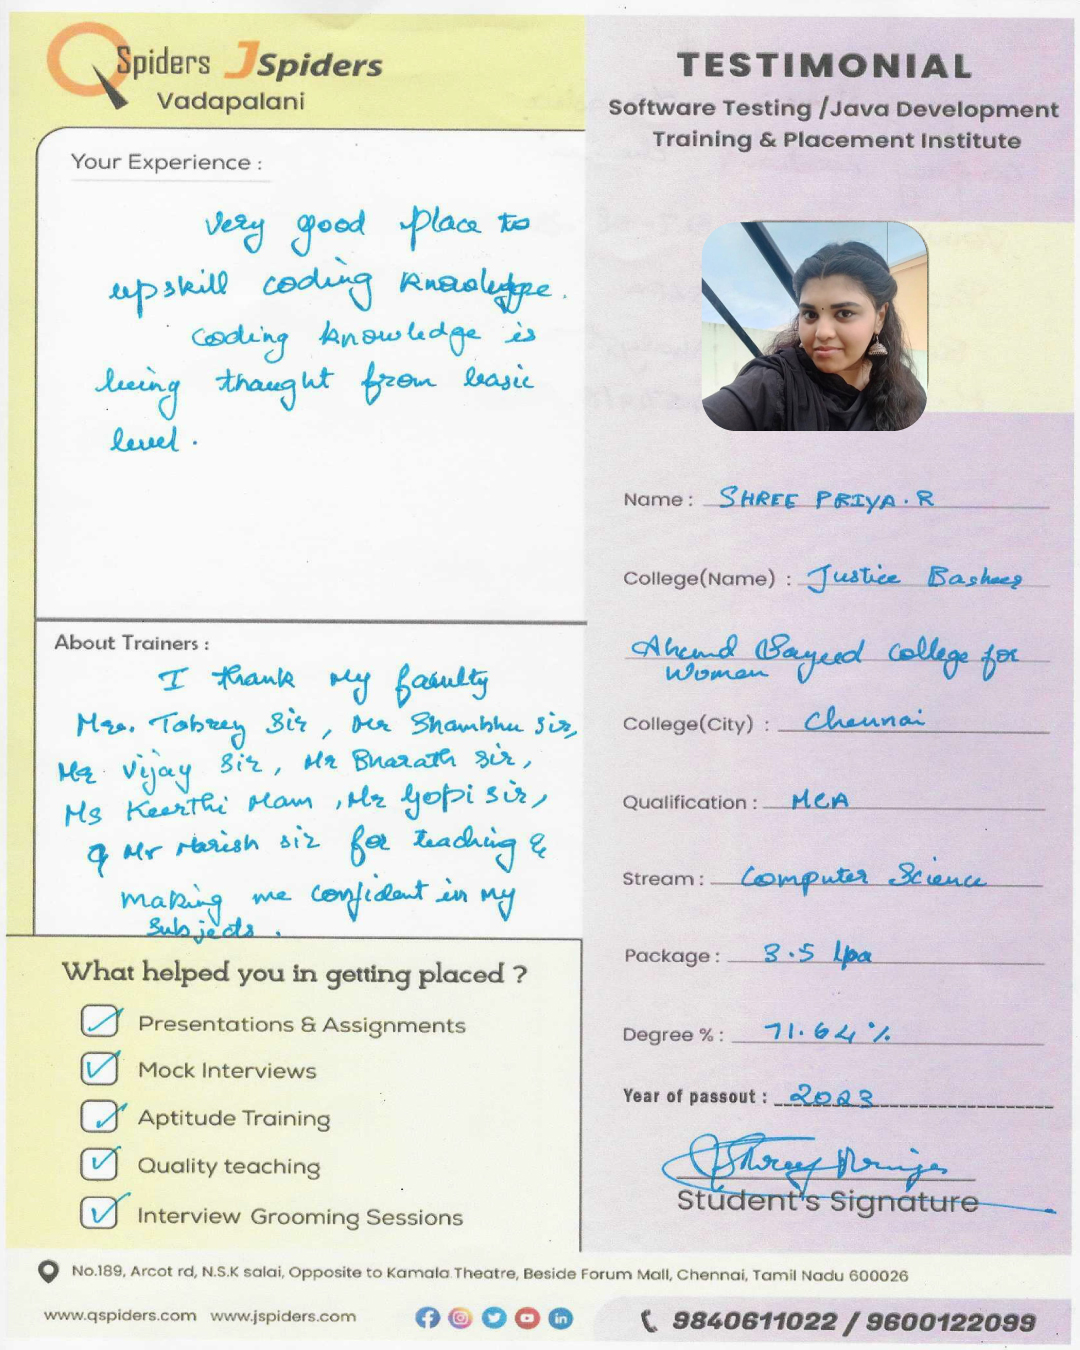 QSpiders JSpiders
Vadapalani
TESTIMONIAL
Software Testing /Java Development
Training & Placement Institute
Your Experience :
Very good place to
upskill coding knowledge.
coding knowledge is
being thaught from basic
level.
Name : SHREE PRIYA. R
College(Name) : Justice Basheer
Ahemd Sayeed College for
Women
College(City) : Chennai
Qualification : MCA
Stream : Computer Science
Package : 3.5 lpa
Degree % : 71.64 %
Year of passout : 2023
Student's Signature
About Trainers :
I thank my faculty
Mr. Tabrey Sir, Mr Shambhu sir,
Mr Vijay Sir, Mr Bharath sir,
Ms Keerthi Mam, Mr Gopi sir,
& Mr Harish sir for teaching &
making me confident in my
subjects.
What helped you in getting placed ?
Presentations & Assignments
Mock Interviews
Aptitude Training
Quality teaching
Interview Grooming Sessions
No.189, Arcot rd, N.S.K salai, Opposite to Kamala Theatre, Beside Forum Mall, Chennai, Tamil Nadu 600026
www.qspiders.com www.jspiders.com
9840611022 / 9600122099